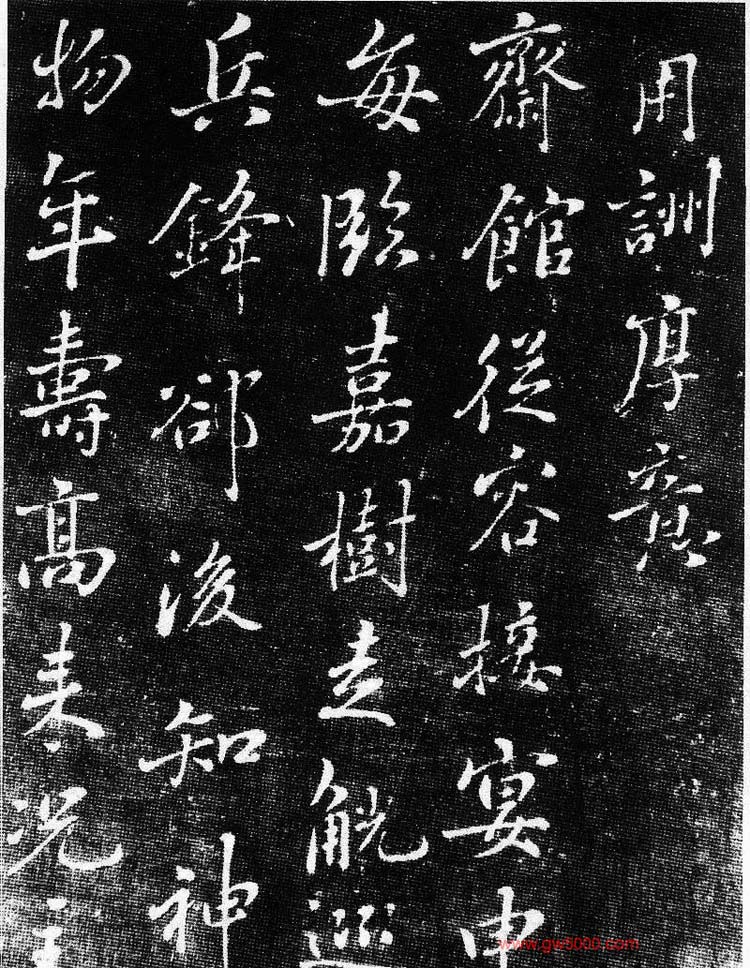 用詶厚意
齋館從容接宴申
每臨嘉樹走觥巡
兵鋒卻後知神
物年壽高來況主
www.gw5000.com